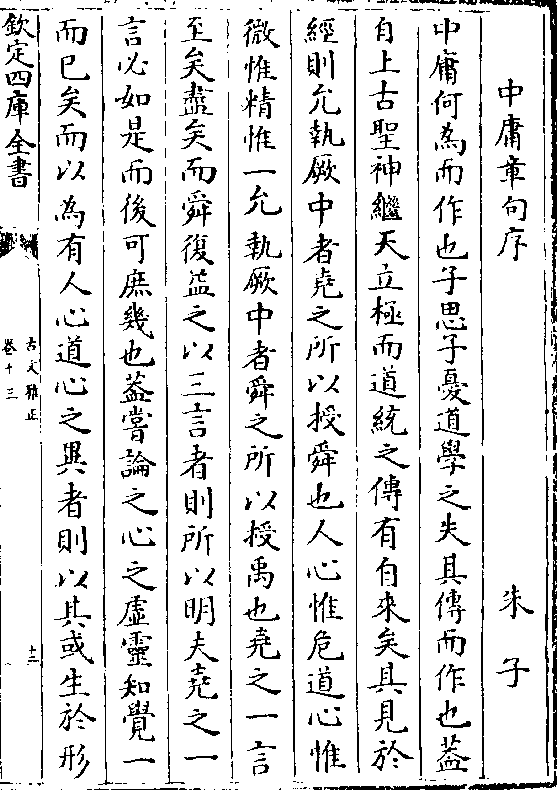 中庸章句序　朱子
中庸何為而作也子思子憂道學之失其傳而作也葢
自上古聖神繼天立極而道統之傳有自來矣其見於
經則允執厥中者堯之所以授舜也人心惟危道心惟
微惟精惟一允執厥中者舜之所以授禹也堯之一言
至矣盡矣而舜復益之以三言者則所以明夫堯之一
言必如是而後可庶幾也葢嘗論之心之虛靈知覺一
而已矣而以為有人心道心之異者則以其或生於形
欽定四庫全書
古文雅正
卷十三
十二